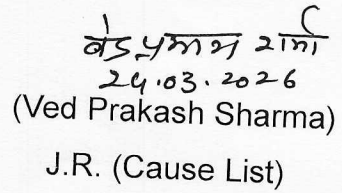 वेद प्रकाश शर्मा
24.03.2026
(Ved Prakash Sharma)
J.R. (Cause List)